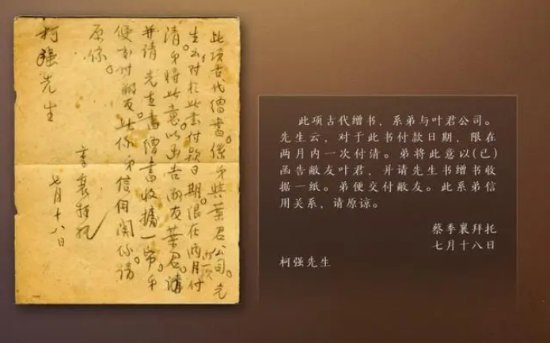 此项古代繒書係弟與葉君公司。先
生云对於此書付款日期限在兩月付
清弟将此意以函告敝友葉君請
并请先生書繒書收據一帋弟
便交付敝友此係弟信用関係請
原谅
季襄拜托
七月十八日
柯强先生
此项古代增书,系弟与叶君公司。
先生云,对于此书付款日期,限在
两月内一次付请。弟将此意以(已)
函告敝友叶君,并请先生书增书收
据一纸。弟便交付敝友。此系弟信
用关系,请原谅。
蔡季襄拜托
七月十八日
柯强先生